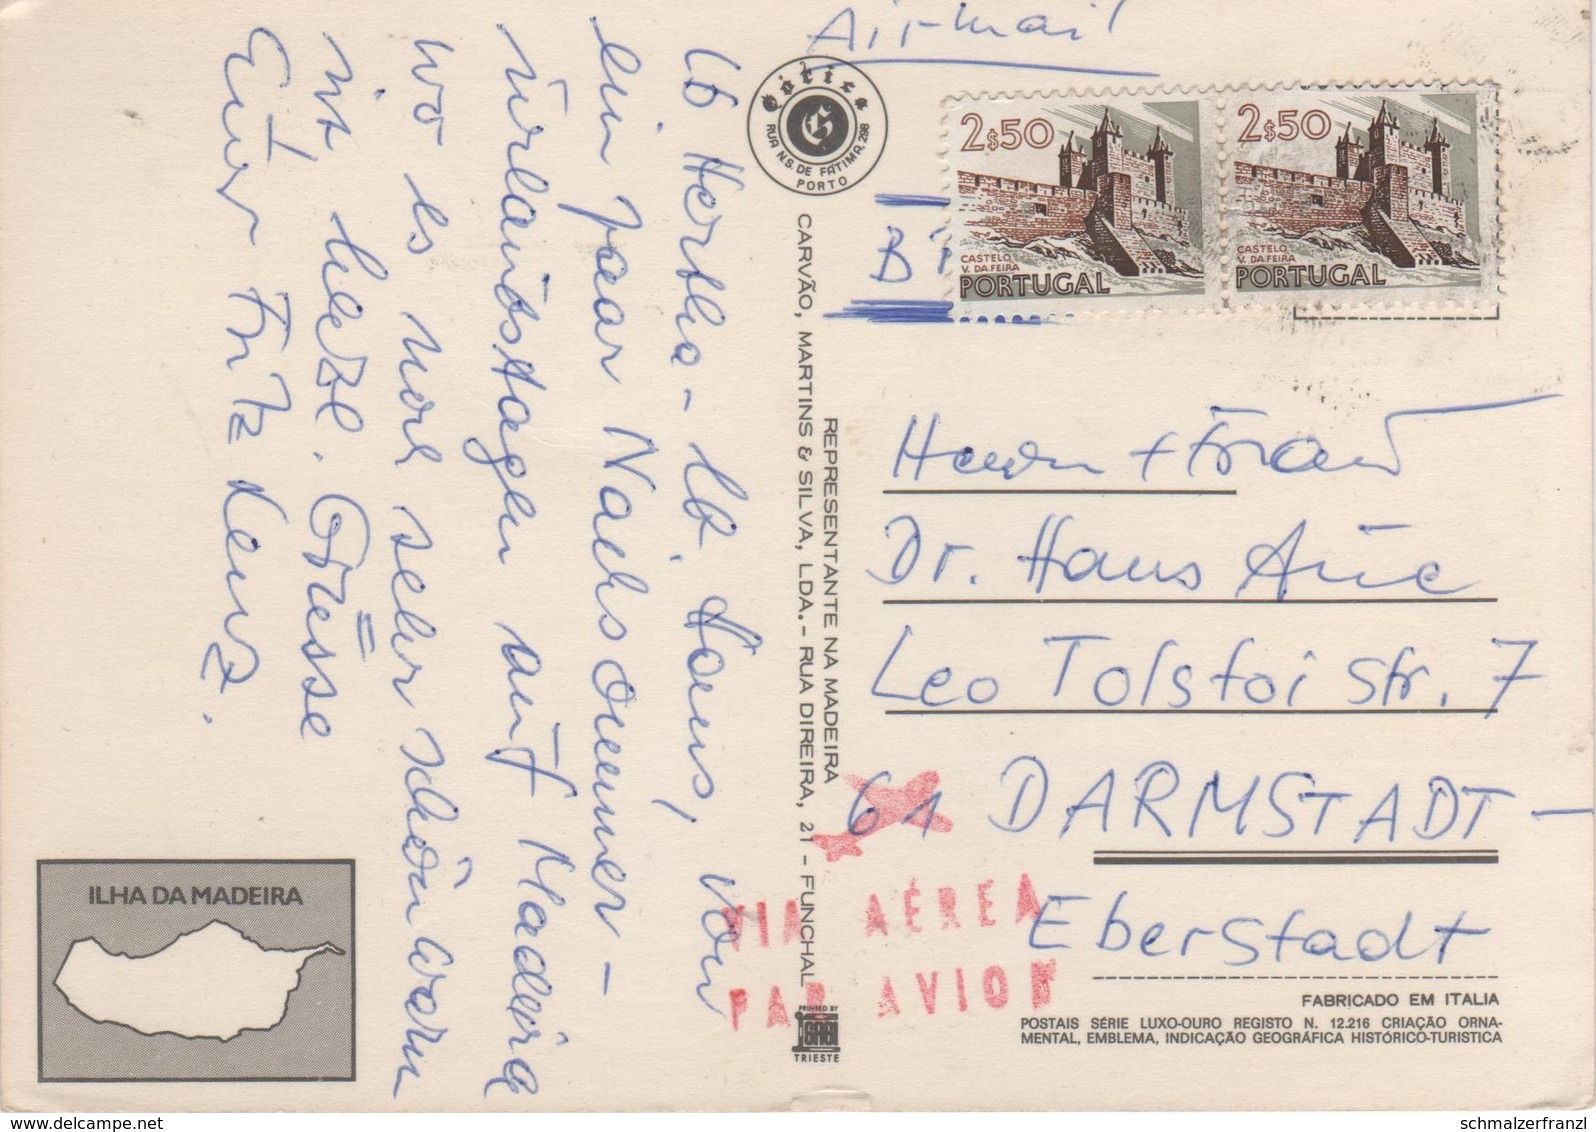 Air-mail
Lb Hertha - Lb. Hans, von
ein paar Nachsommer-
ürlaubstagen auf Madeira
wo es noch sehr schön warm
ist herzl. Grüsse
Euer Fritz
ILHA DA MADEIRA
Gótica
RUA N.S. DE FÁTIMA, 298
PORTO
REPRESENTANTE NA MADEIRA
CARVÃO, MARTINS & SILVA, LDA. - RUA DIREIRA, 21 - FUNCHAL
PRINTED BY
TRIESTE
2$50
CASTELO
V. DA FEIRA
PORTUGAL
2$50
CASTELO
V. DA FEIRA
PORTUGAL
Herrn + Frau
Dr. Hans Aüe
Leo Tolstoi Str. 7
61 DARMSTADT -
Eberstadt
VIA AÉREA
PAR AVION
FABRICADO EM ITALIA
POSTAIS SÉRIE LUXO-OURO REGISTO N. 12.216 CRIAÇÃO ORNA-
MENTAL, EMBLEMA, INDICAÇÃO GEOGRÁFICA HISTÓRICO-TURISTICA
schmalzerfranzl